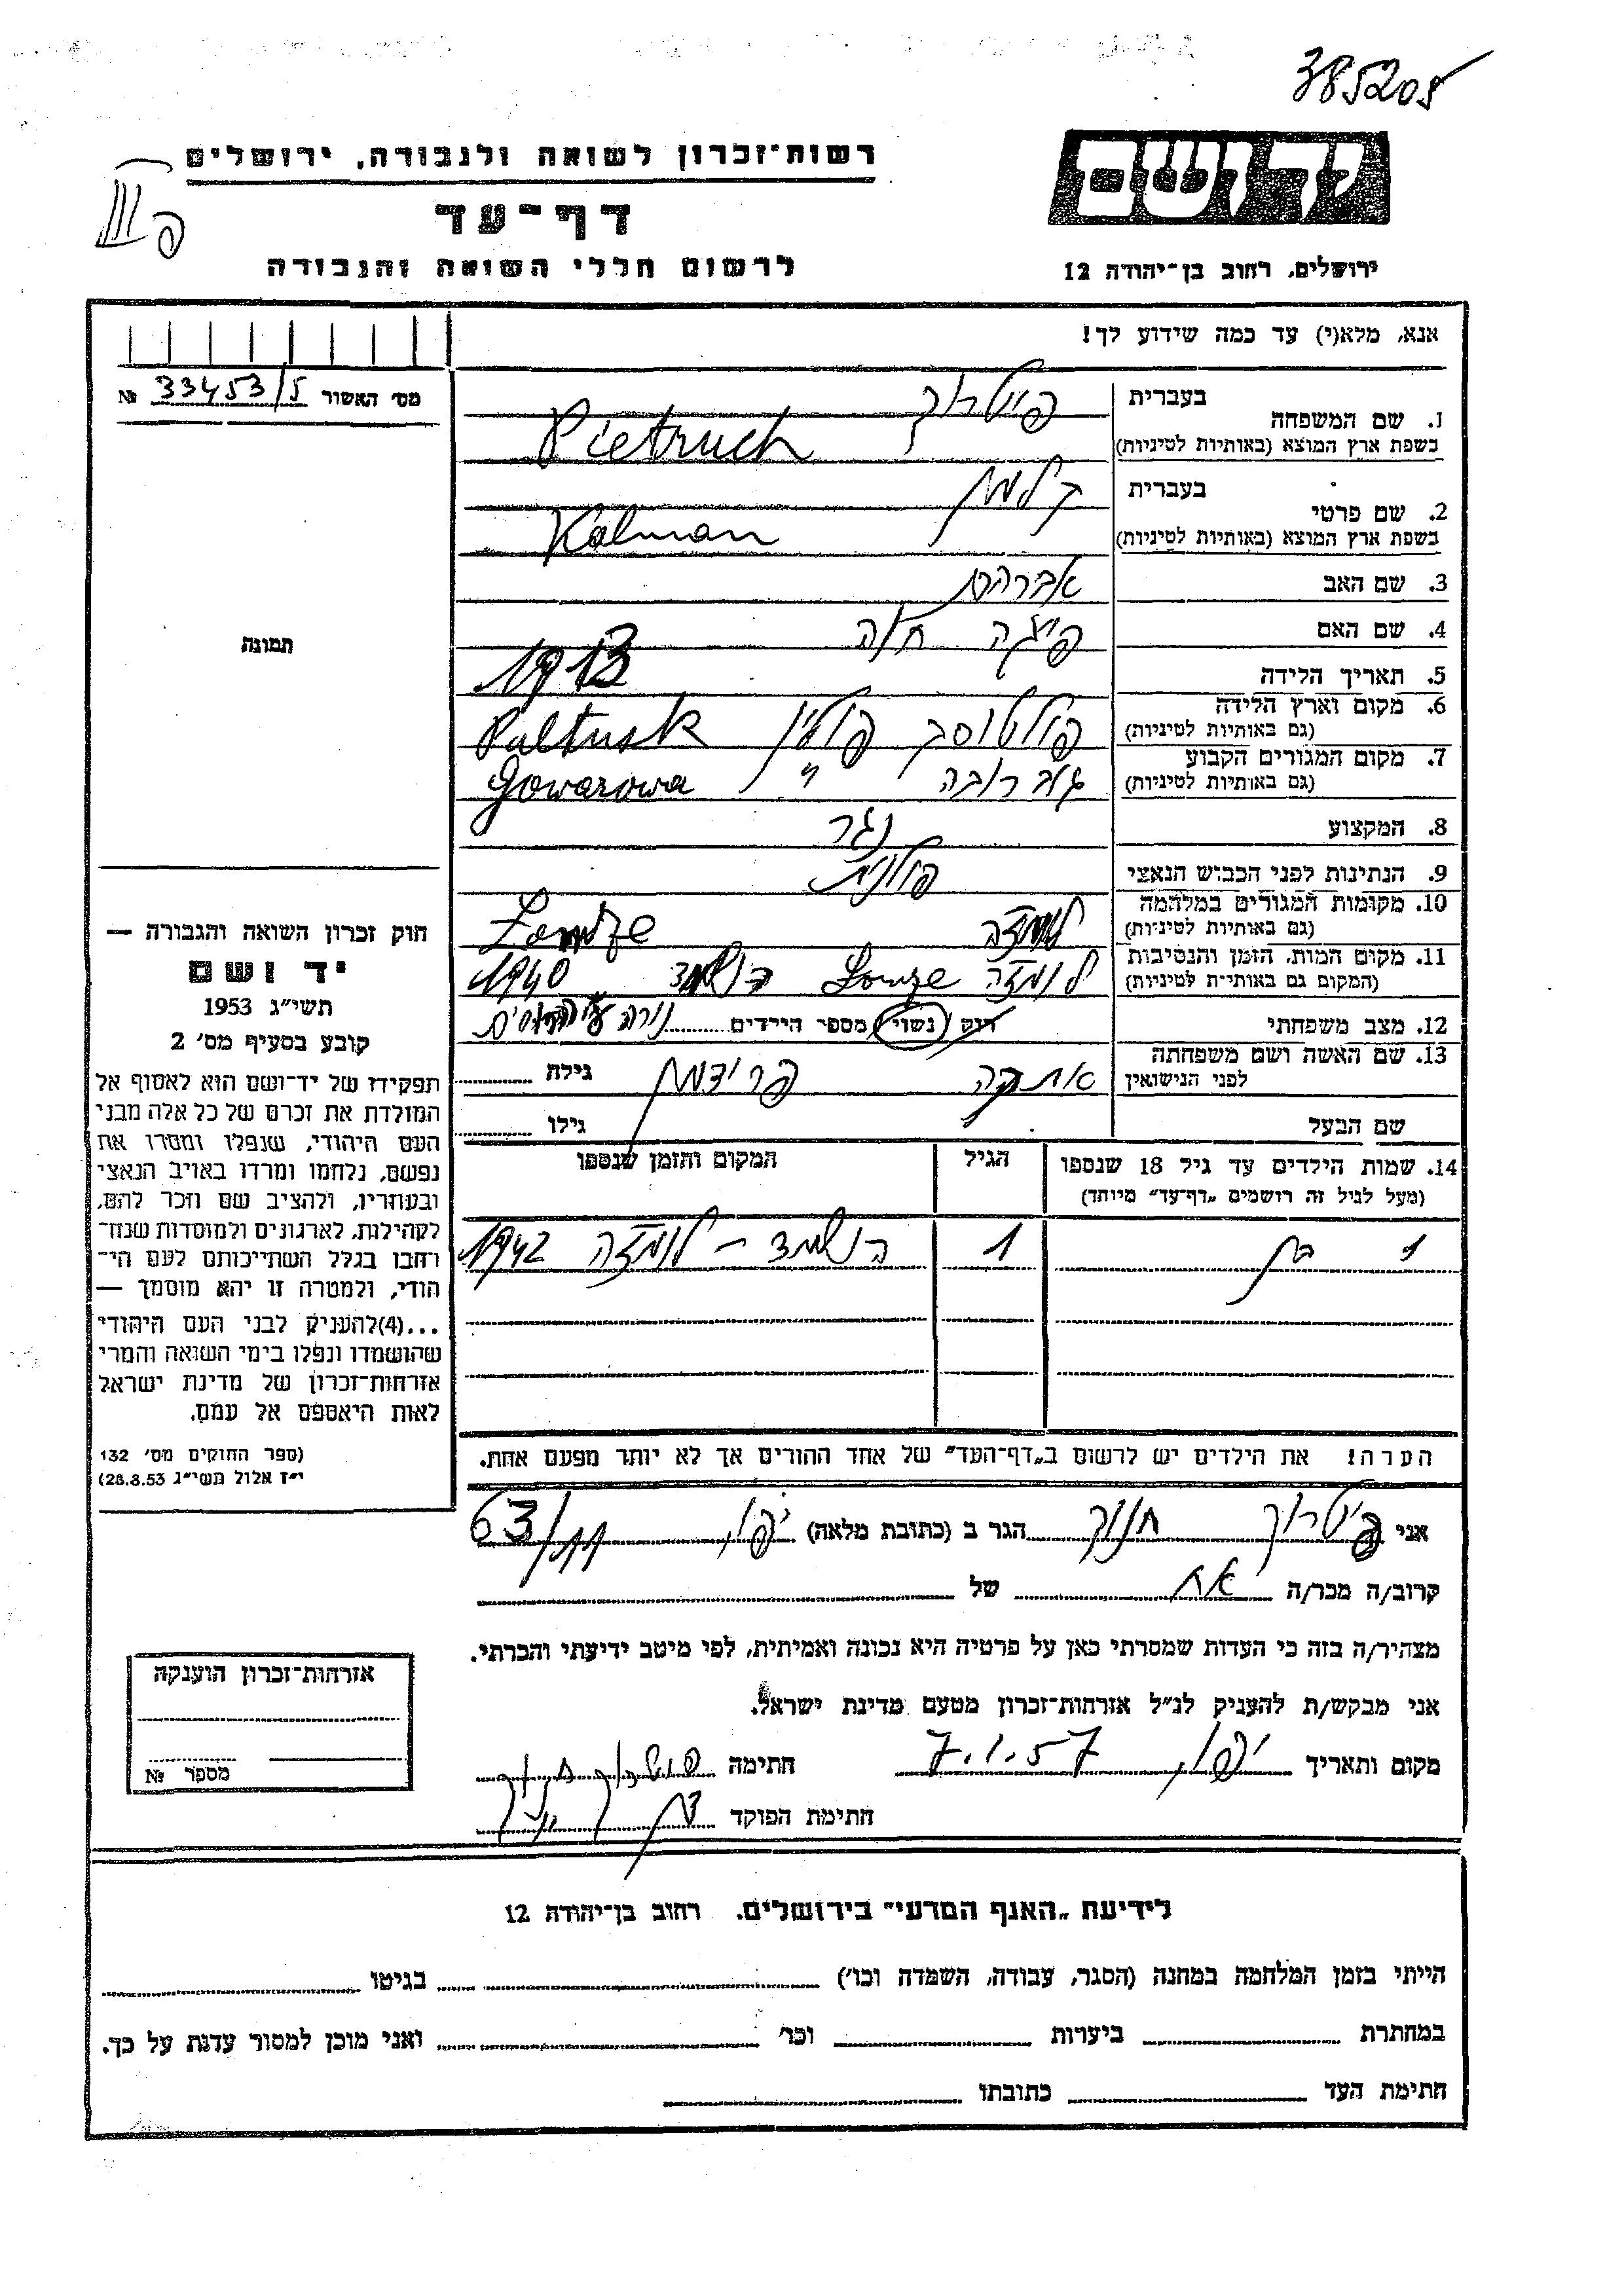 385205
רשות־זכרון לשואה ולגבורה, ירושלים
יד ושם
דף־עד
לרשום חללי השואה והגבורה
ירושלים, רחוב בן־יהודה 12
אנא, מלא(י) עד כמה שידוע לך!
מס׳ האשור 33453/5 №
תמונה
1. שם המשפחה
בעברית פיטרוך
בשפת ארץ המוצא (באותיות לטיניות) Pietruch
2. שם פרטי
בעברית קלמן
בשפת ארץ המוצא (באותיות לטיניות) Kalman
3. שם האב אברהם
4. שם האם פיגה חיה
5. תאריך הלידה 1913
6. מקום וארץ הלידה פולטוסק פולין Pultusk
(גם באותיות לטיניות)
7. מקום המגורים הקבוע גוברובה " Goworowa
(גם באותיות לטיניות)
8. המקצוע נגר
9. הנתינות לפני הכבוש הנאצי פולנית
10. מקומות המגורים במלחמה לומזה Lomze
(גם באותיות לטיניות)
11. מקום המות, הזמן והנסיבות לומזה Lomze הושמד 1940
(המקום גם באותיות לטיניות)
12. מצב משפחתי רווק נשוי מספר הילדים נורה ע״י הנאצים
13. שם האשה ושם משפחתה פרידמן גילה
לפני הנישואין
שם הבעל גילו
14. שמות הילדים עד גיל 18 שנספו הגיל המקום והזמן שנספו
(מעל לגיל זה רושמים „דף־עד״ מיוחד)
1 בן 1 הושמד – לומזה 1942
הערה! את הילדים יש לרשום ב„דף־העד״ של אחד ההורים אך לא יותר מפעם אחת.
חוק זכרון השואה והגבורה —
יד ושם
תשי״ג 1953
קובע בסעיף מס׳ 2
תפקידו של יד־ושם הוא לאסוף אל
המולדת את זכרם של כל אלה מבני
העם היהודי, שנפלו ומסרו את
נפשם, נלחמו ומרדו באויב הנאצי
ובעוזריו, ולהציב שם וזכר להם,
לקהילות, לארגונים ולמוסדות שנח־
רחבו בגלל השתייכותם לעם הי־
הודי, ולמטרה זו יהא מוסמך —
...(4)להעניק לבני העם היהודי
שהושמדו ונפלו בימי השואה והמרי
אזרחות־זכרון של מדינת ישראל
לאות היאספם אל עמם.
(ספר החוקים מס׳ 132
י״ז אלול תשי״ג 28.8.53)
אני פיטרוך חנוך הגר ב (כתובת מלאה) יפו, 63/11
קרוב/ה מכר/ה אח של
מצהיר/ה בזה כי העדות שמסרתי כאן על פרטיה היא נכונה ואמיתית, לפי מיטב ידיעתי והכרתי.
אני מבקש/ת להעניק לנ״ל אזרחות־זכרון מטעם מדינת ישראל.
מקום ותאריך יפו, 7.1.57 חתימה
חתימת הפוקד
אזרחות־זכרון הוענקה
מספר №
לידיעת „האגף המדעי״ בירושלים, רחוב בן־יהודה 12
הייתי בזמן המלחמה במחנה (הסגר, עבודה, השמדה וכו׳) בגיטו
במחתרת ביערות וכו׳ ואני מוכן למסור עדות על כך.
חתימת העד כתובתו